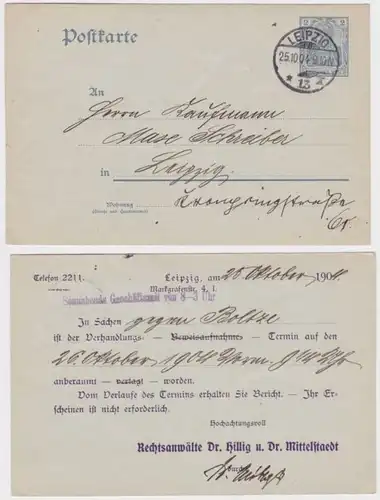 Postkarte
2
LEIPZIG
13
An
Herrn Kaufmann
Schreiber
in Leipzig
Wohnung
(Straße und Hausnummer)
Kronprinzstraße
Telefon 2211.
Leipzig, am 25. Oktober 1904.
Markgrafenstr. 4, I.
Sonnabends Geschäftszeit von 8–3 Uhr
In Sachen gegen Boltze
ist der Verhandlungs- Beweisaufnahme- Termin auf den
26. Oktober 1904 Vorm. Uhr
anberaumt – verlegt – worden.
Vom Verlaufe des Termins erhalten Sie Bericht. – Ihr Er-
scheinen ist nicht erforderlich.
Hochachtungsvoll
Rechtsanwälte Dr. Hillig u. Dr. Mittelstaedt
durch